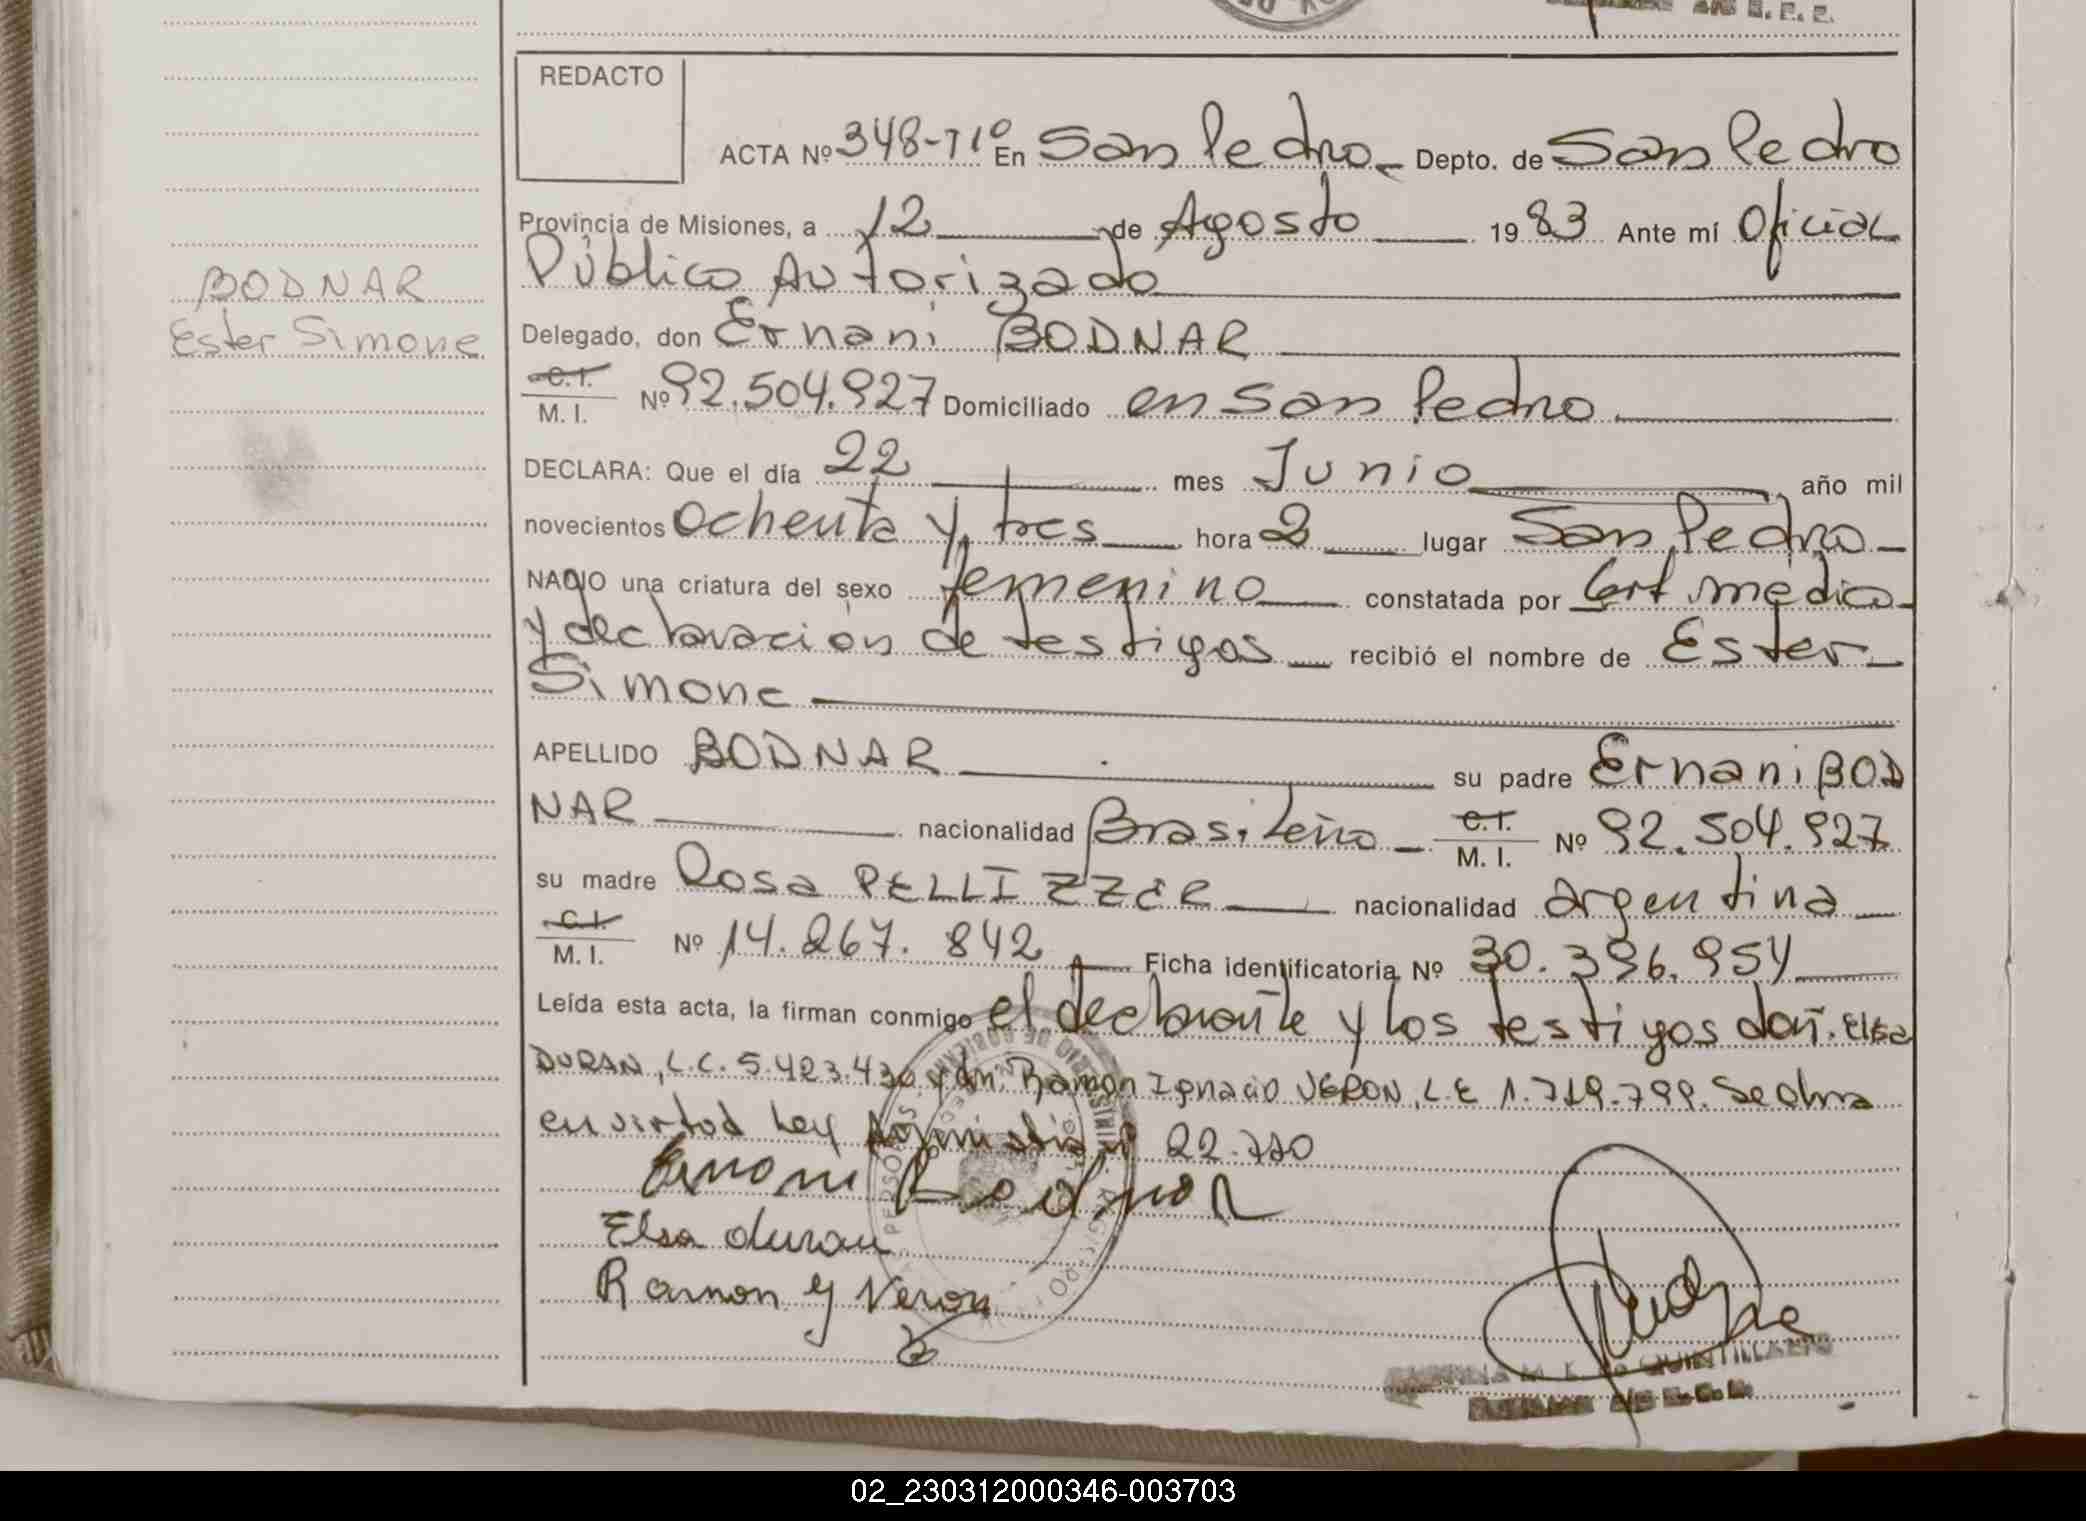 REDACTO
ACTA Nº 348-71º En San Pedro Depto. de San Pedro
Provincia de Misiones, a 12 de Agosto 1983 Ante mí Oficial
Público Autorizado
Delegado, don Ernani BODNAR
BODNAR
Ester Simone
C.I.
M. I. Nº 92.504.927 Domiciliado en San Pedro
DECLARA: Que el día 22 mes Junio año mil
novecientos ochenta y tres hora 2 lugar San Pedro
NACIO una criatura del sexo femenino constatada por Cert medico
y declaración de testigos recibió el nombre de Ester
Simone
APELLIDO BODNAR su padre Ernani BOD
NAR nacionalidad Brasileño C.I. M. I. Nº 92.504.927
su madre Rosa PELLIZZER nacionalidad argentina
C.I.
M. I. Nº 14.267.842 Ficha identificatoria Nº 30.396.954
Leída esta acta, la firman conmigo el declarante y los testigos doñ. Elsa
DURAN, L.C. 5.423.430 y dn. Ramon Ignacio VERON, L.E 1.719.799. Se labra
en virtud Ley 22.710
Ernani Bodnar
Elsa duran
Ramon Y Veron
02_230312000346-003703